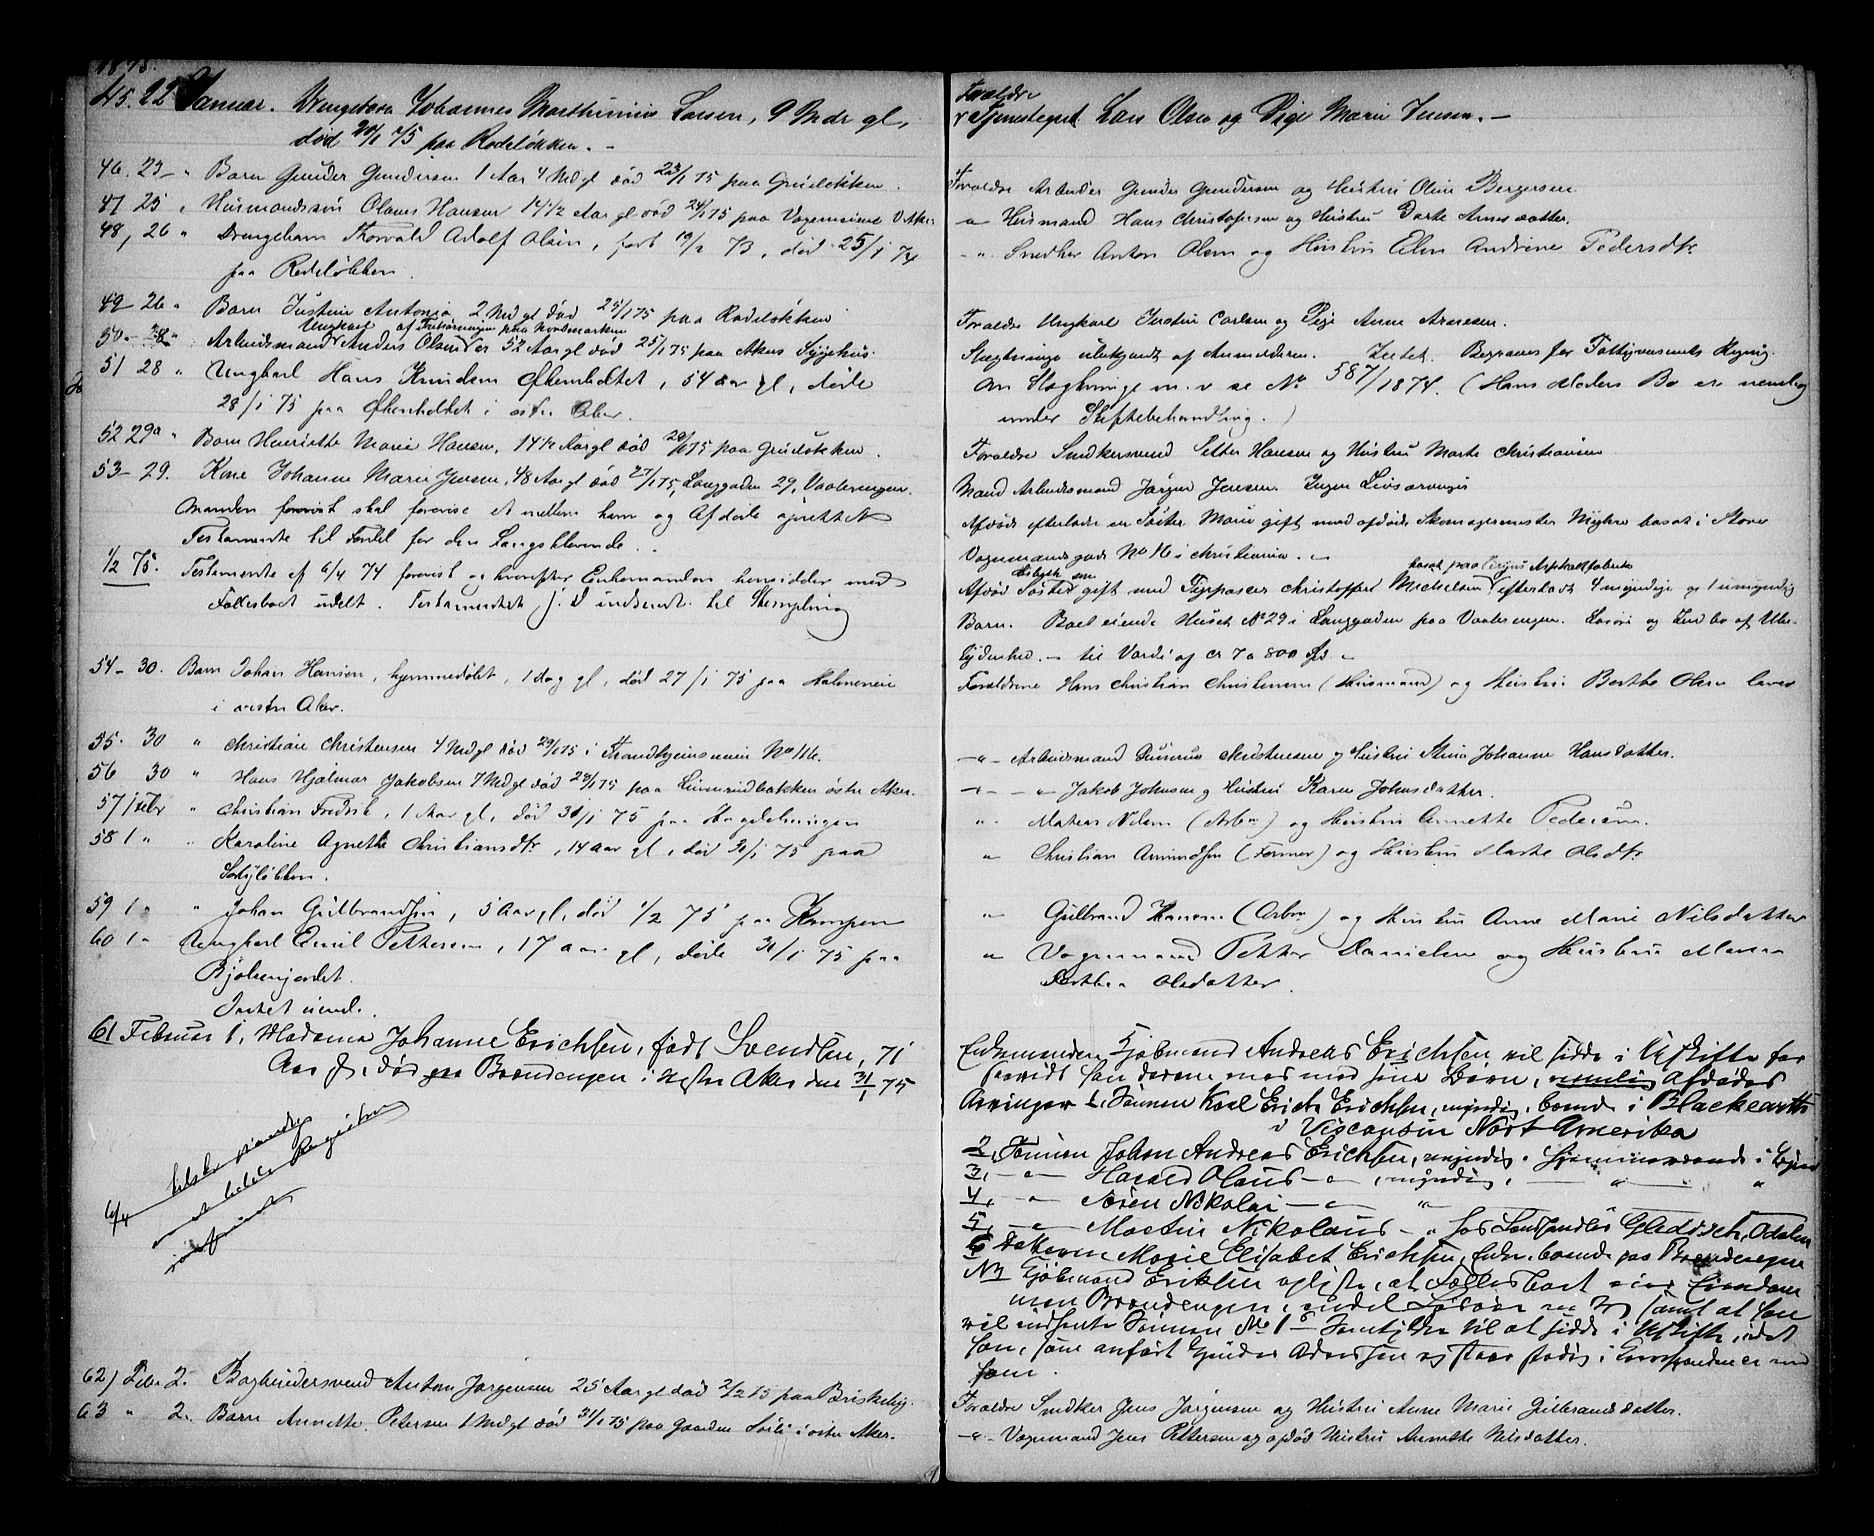 1875.
45. 22 Januar. Drengebarn Johannes Larsen, 9 Mdr gl,
død 20/1 75 paa Rodeløkken. -
46. 23 " Barn Gunder Gundersen 1 Aar 4 Mdgl død 23/1 75 paa Grünløkken.
47 25 " Husmandssøn Olaus Hansen 14 1/2 Aar gl død 24/1 75 paa V Aker.
48, 26 " Drengebarn Thorvald Adolf Olsen, født 19/2 73, død 25/1 74
paa Rodeløkken.
49 - 26 " Barn Justine Antonia 2 Mdgl død 25/1 75 paa Rodeløkken
Ungkarl af paa Nordmarken
50 - " Arbeidsmand Anders Olsen 52 Aar gl død 25/1 75 paa Akers Sygehus.
51 28 " Ungkarl Hans Knudsen, 54 aar gl, døde
28/1 75 paa i østre Aker.
52 29 " Barn Henriette Marie Hansen, 1 Aar gl død 28/1 75 paa Grünløkken.
53 - 29. Kone Johanne Marie Jensen, 48 Aar gl død 27/1 75, Langgaden 29, Vaalerengen.
Manden skal forevise et mellem ham og Afdøde oprettet
Testamente til Fordel for den Længstlevende.
1/2 75. Testamente af 6/4 74 forevist og hvorefter Enkemanden hensidder med
Fællesboet udelt. Testamentet j. d indsendt til Stempling
54 - 30. Barn Johan Hansen, hjemmedøbt, 1 dag gl, død 27/1 75 paa
i vestre Aker.
55. 30 " Christian Christensen 4 Mdgl død 29/1 75 i No 116.
56 30 " Hans Hjalmar Jakobsen 7 Mdgl død 28/1 75 paa østre Aker.
57 1 Febr " Christian Fredrik, 1 Aar gl, død 31/1 75 paa Hagdehaugen
58 1 " " Karoline Agnethe Christiansdtr, 14 aar gl, død 31/1 75 paa
59 1 " " Johan Gulbrandsen, 5 Aar gl, død 1/2 75 paa Kampen
60 1 " Ungkarl Emil Pettersen, 17 aar gl, døde 31/1 75 paa
Bjølsenjordet.
Intet eiend.
61 Februar 1, Madame Johanne Erichsen, født Svendsen, 71
Aar gl, død paa Brændengen i Vestre Aker den 31/1 75
6/4
62) Febr 2. Bogbindersvend Anton Jørgensen 25 Aar gl død 2/2 75 paa Briskeby.
63 " 2. Barn Annette Petersen 1 Mdgl død 31/1 75 paa Gaarden i østre Aker.
Forældre
Tjenestegut Lars Olsen og Pige Marie Jensen. -
Forældre Arbeider Gunder Gundersen og Hustru Oline Bergersen
- " - Husmand Hans Christofersen og Hustru Dorte Arnesdatter.
- " - Snedker Anton Olsen og Hustru Elen Andrine Pedersdtr
Forældre Ungkarl Justin Carlsen og Pige Anne Arnesen.
Slægtninge ubekjendt af Anmelderen. Intet. Begraves for Fattigvæsenets Regnig.
Om Slægtninge m. v se No 587/1874. (Hans Moders Bo er nemlig
under Skiftebehandling.)
Forældre Snedkersvend Petter Hansen og Hustru Marte Christiansen
Mand Arbeidsmand Jørgen Jensen. Ingen Livsarvinger
Afdøde efterlader en Søster Marie gift med afdøde Skomagermester boset i Store
Vognmandsgade No 16 i Christiania. -
Afdød Søster gift med Christoffer Michelsen efterladt 4 myndige og 1 umyndig
Barn. Boet eiende Huset No 29 i Langgaden paa Vaalerengen. Løsøre og Indbo af Ube-
tydenhed. - til Værdi af ca 7 a 800 Spd. -
Forældrene Hans Christian Christensen (Husmand) og Hustru Berthe Olsen lever
- " - Arbeidsmand Christensen og Hustru Stina Johanne Hansdatter.
- " - - " Jakob Johnsen og Hustru Karen Johnsdatter.
" Mathias Nilsen (Arbr) og Hustru Annette Pedersen.
" Christian Amundsen (Former) og Hustru Marte Olsdtr
" Gulbrand Hansen (Arbr) og Hustru Anne Marie Nilsdatter
" Vognmand Petter Danielsen og Hustru Maren
Olsdatter.
Enkemanden Kjøbmand Andreas Erichsen vil sidde i Uskifte for
saavidt han dermed med sine Børn, nemlig Afdødes
Arvinger 1, Sønnen Karl Erich Erichsen, myndig, boende i Blackearth
i Visconsin Nort Amerika
2, Sønnen Johan Andreas Erichsen, myndig, hjemmeværende i
3, - " - Harald Olaus - " -, myndig, - " - "
4, - " - Søren Nikolai - " - "
5, - " - Martin Nikolaus - " hos Odalen
6 Datteren Marie Elisabet Erichsen, boende paa Brændengen
NB Kjøbmand Eriksen oplyste, at Fællesboet eier Eiendom-
men Brændengen, samt at han
vil indhente Sønnen No 1s Samtykke til at sidde i Uskifte, idet
han, som anført og staar stadig i Correspondence med
ham.
Forældre Snedker Jens Jørgensen og Hustru Anne Marie Gulbrandsdatter.
- " - Vognmand Jens Pettersen og afdød Hustru Annette Nilsdatter.